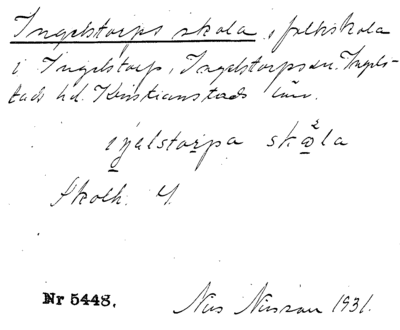 Ingelstorps skola, folkskola
i Ingelstorp, Ingelstorps sn. Ingel-
stads hd. Kristianstads län.
skola
Skolk. 4.
Nr 5448. Nils Nilsson 1931.